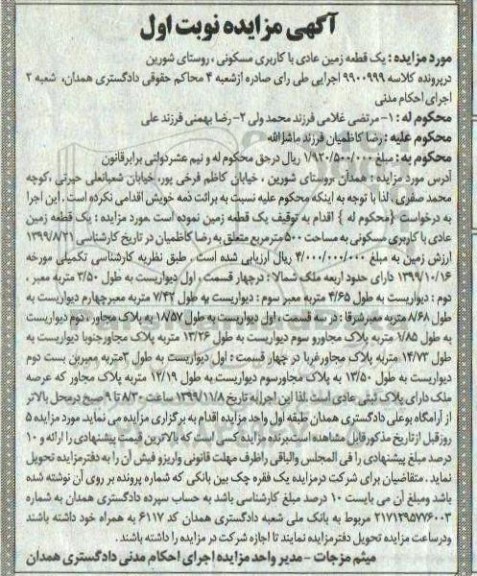 آگهی مزایده نوبت اول
مورد مزایده : یک قطعه زمین عادی با کاربری مسکونی ، روستای شورین
درپرونده کلاسه ۹۹۰۰۹۹۹ اجرایی طی رای صادره ازشعبه ۴ محاکم حقوقی دادگستری همدان، شعبه ۲
اجرای احکام مدنی
محکوم له : ۱- مرتضی غلامی فرزند محمد ولی ۲- رضا بهمنی فرزند علی
محکوم علیه : رضا کاظمیان فرزند ماشرالله
محکوم به : مبلغ ۱/۹۳۰/۵۰۰/۰۰۰ ریال درحق محکوم له و نیم عشردولتی برابرقانون
آدرس مورد مزایده : همدان ،روستای شورین ، خیابان کاظم فرخی پور، خیابان شعبانعلی حیرتی ،کوچه
محمد صفری ، لذا با توجه به اینکه محکوم علیه نسبت به برائت ذمه خویش اقدامی نکرده است . این اجرا
به درخواست { محکوم له } اقدام به توقیف یک قطعه زمین نموده است .مورد مزایده : یک قطعه زمین
عادی با کاربری مسکونی به مساحت ۵۰۰ مترمربع متعلق به رضا کاظمیان در تاریخ کارشناسی ۱۳۹۹/۸/۲۱
ارزش زمین به مبلغ ۴/۰۰۰/۰۰۰/۰۰۰ ریال ارزیابی شده است . طبق نظریه کارشناسی تکمیلی مورخه
۱۳۹۹/۱۰/۱۶ دارای حدود اربعه ملک شمالا : درچهار قسمت ، اول دیواریست به طول ۳/۵۰ متربه معبر ،
دوم : دیواریست به طول ۴/۶۵ متربه معبر سوم : دیواریست به طول ۷/۴۲ متربه معبرچهارم دیوانیست به
طول ۸/۶۸ متربه معبرشرقا : در سه قسمت ، اول دیواریست به طول ۱۸/۵۷ به پلاک مجاور ،دوم دیواریست
به طول ۱/۸۵ متربه پلاک مجاورو سوم دیواریست به طول ۱۳/۲۶ متربه پلاک مجاورجنوبا دیواریست به
طول ۱۴/۷۳ متربه پلاک مجاورغربا در چهار قسمت : اول دیواریست به طول ۳متربه معبربن بست دوم
دیواریست به طول ۱۳/۵۰ به پلاک مجاورسوم دیواریست به طول ۱۲/۱۹ متربه پلاک مجاور که عرصه
ملک دارای پلاک ثبتی عادی است .لذا این اجرابه تاریخ ۱۳۹۹/۱۱/۸ ساعت ۸/۳۰ تا ۹ صبح درمحل بالاتر
از آرامگاه بوعلی دادگستری همدان طبقه اول واحد مزایده اقدام به برگزاری مزایده می نماید. مورد مزایده ۵
روزقبل ازتاریخ مذکورقابل مشاهده است.برنده مزایده کسی است که بالاترین قیمت پیشنهادی را ارائه و ۱۰
درصد مبلغ پیشنهادی را فی المجلس والباقی راظرف مهلت قانونی واریزو فیش آن را به دفترمزایده تحویل
نماید . متقاضیان برای شرکت درمزایده یک فقره چک بین بانکی که شماره پرونده بر روی آن نوشته شده
باشد ومبلغ آن می بایست ۱۰ درصد مبلغ کارشناسی باشد به حساب سپرده دادگستری همدان به شماره
۲۱۷۱۲۹۵۷۷۶۰۰۳ مربوط به بانک ملی شعبه دادگستری همدان کد ۶۱۱۷ به همراه خود داشته باشند
ودرساعت مزایده تحویل دفترمزایده نمایند تا اجازه شرکت در مزایده را داشته باشند .
میثم مزجات - مدیر واحد مزایده اجرای احکام مدنی دادگستری همدان